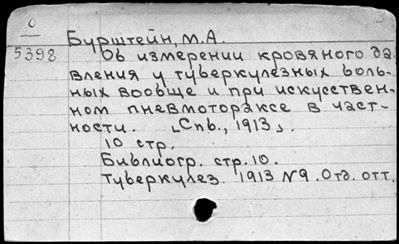 Бурштейн, М.А.
5398
Об измерении кровяного да-
вления у туберкулезных боль-
ных вообще и при искусствен-
ном пневмотораксе в част-
ности. [Спб., 1913].
10 стр.
Библиогр. стр. 10.
Туберкулез. 1913 №9. Отд. отт.